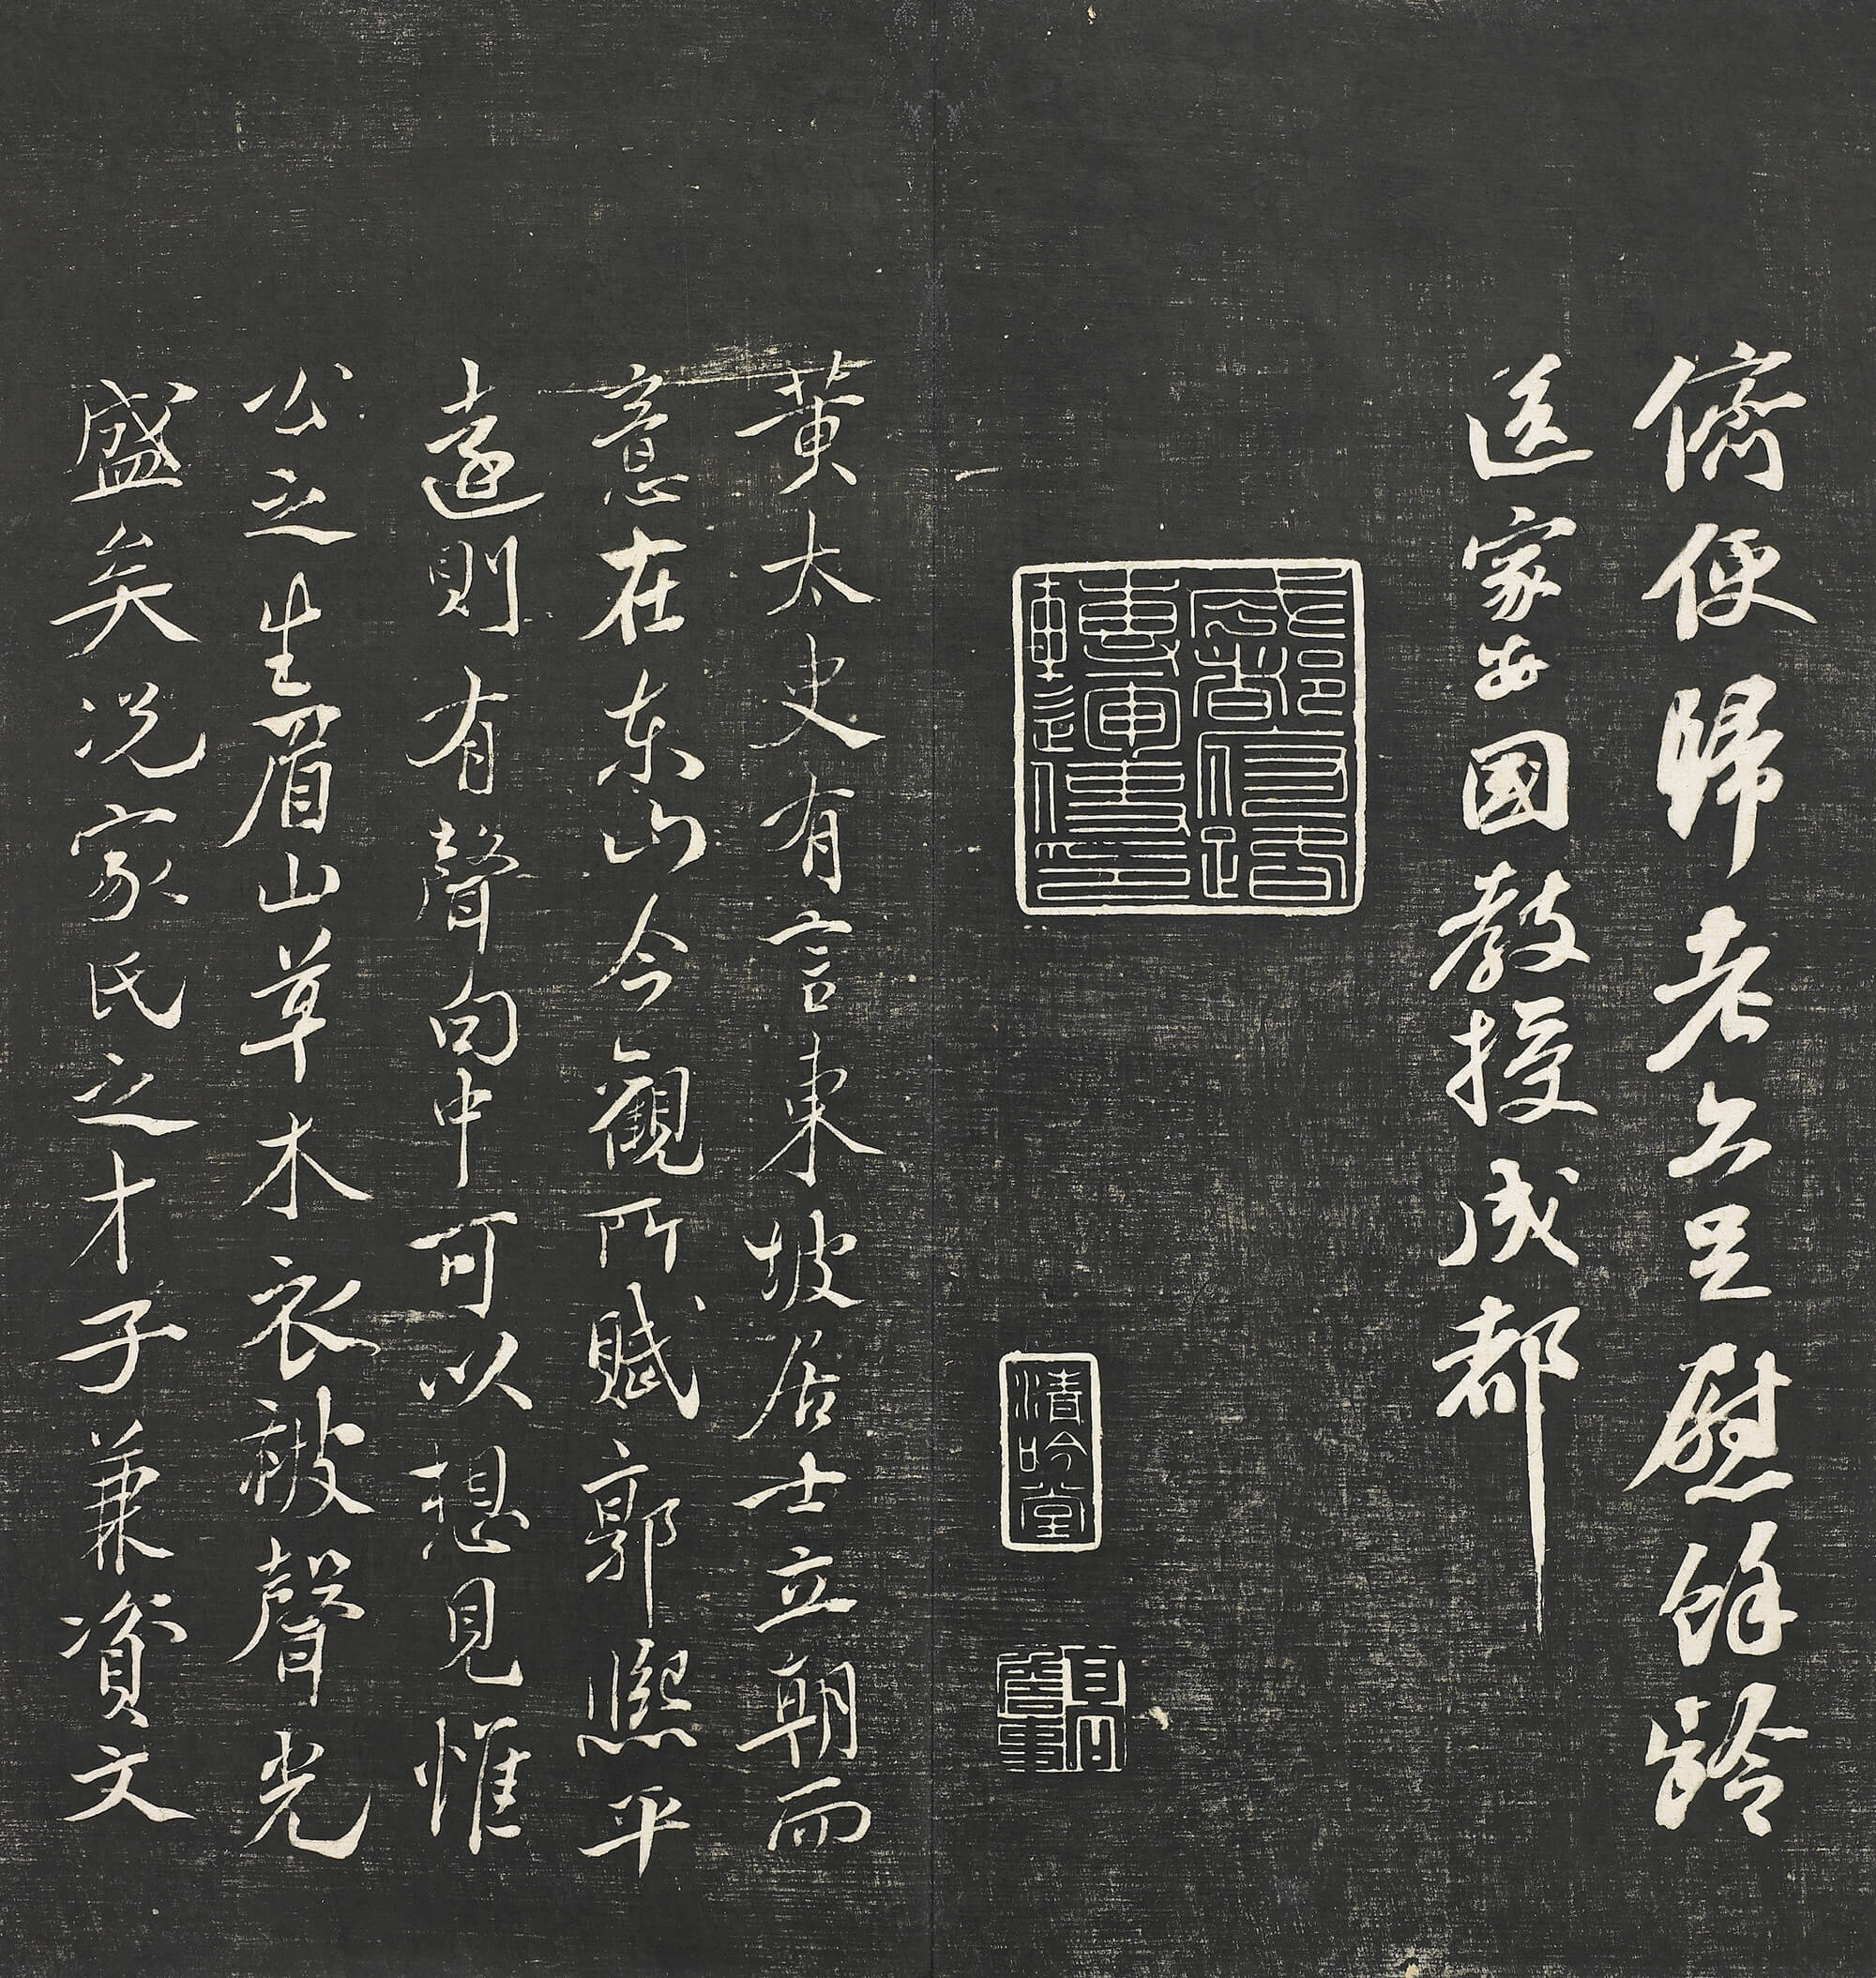 儕便歸老亦足慰餘齡
送家安國教授成都
清吟堂
黃太史有言東坡居士立朝而
意在东山今觀所賦郭熙平
遠則有聲句中可以想見惟
公之生眉山草木衣被聲光
盛矣況家氏之才子兼資文